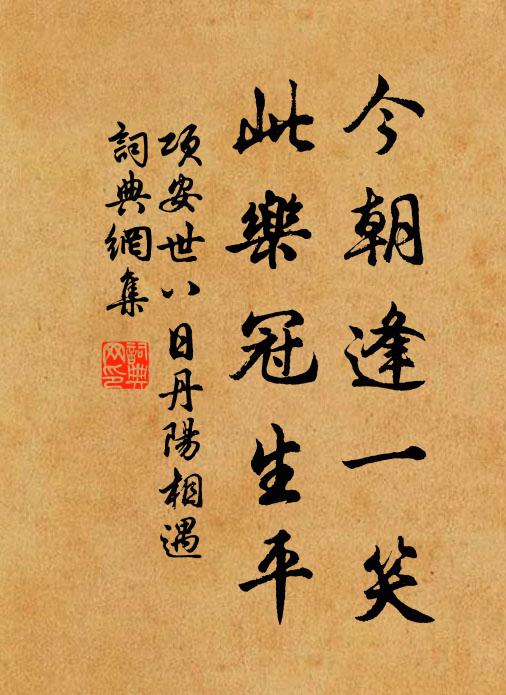 今朝逢一笑
此樂冠生平
項安世八日丹陽相遇
詞典網集
詞典
網印